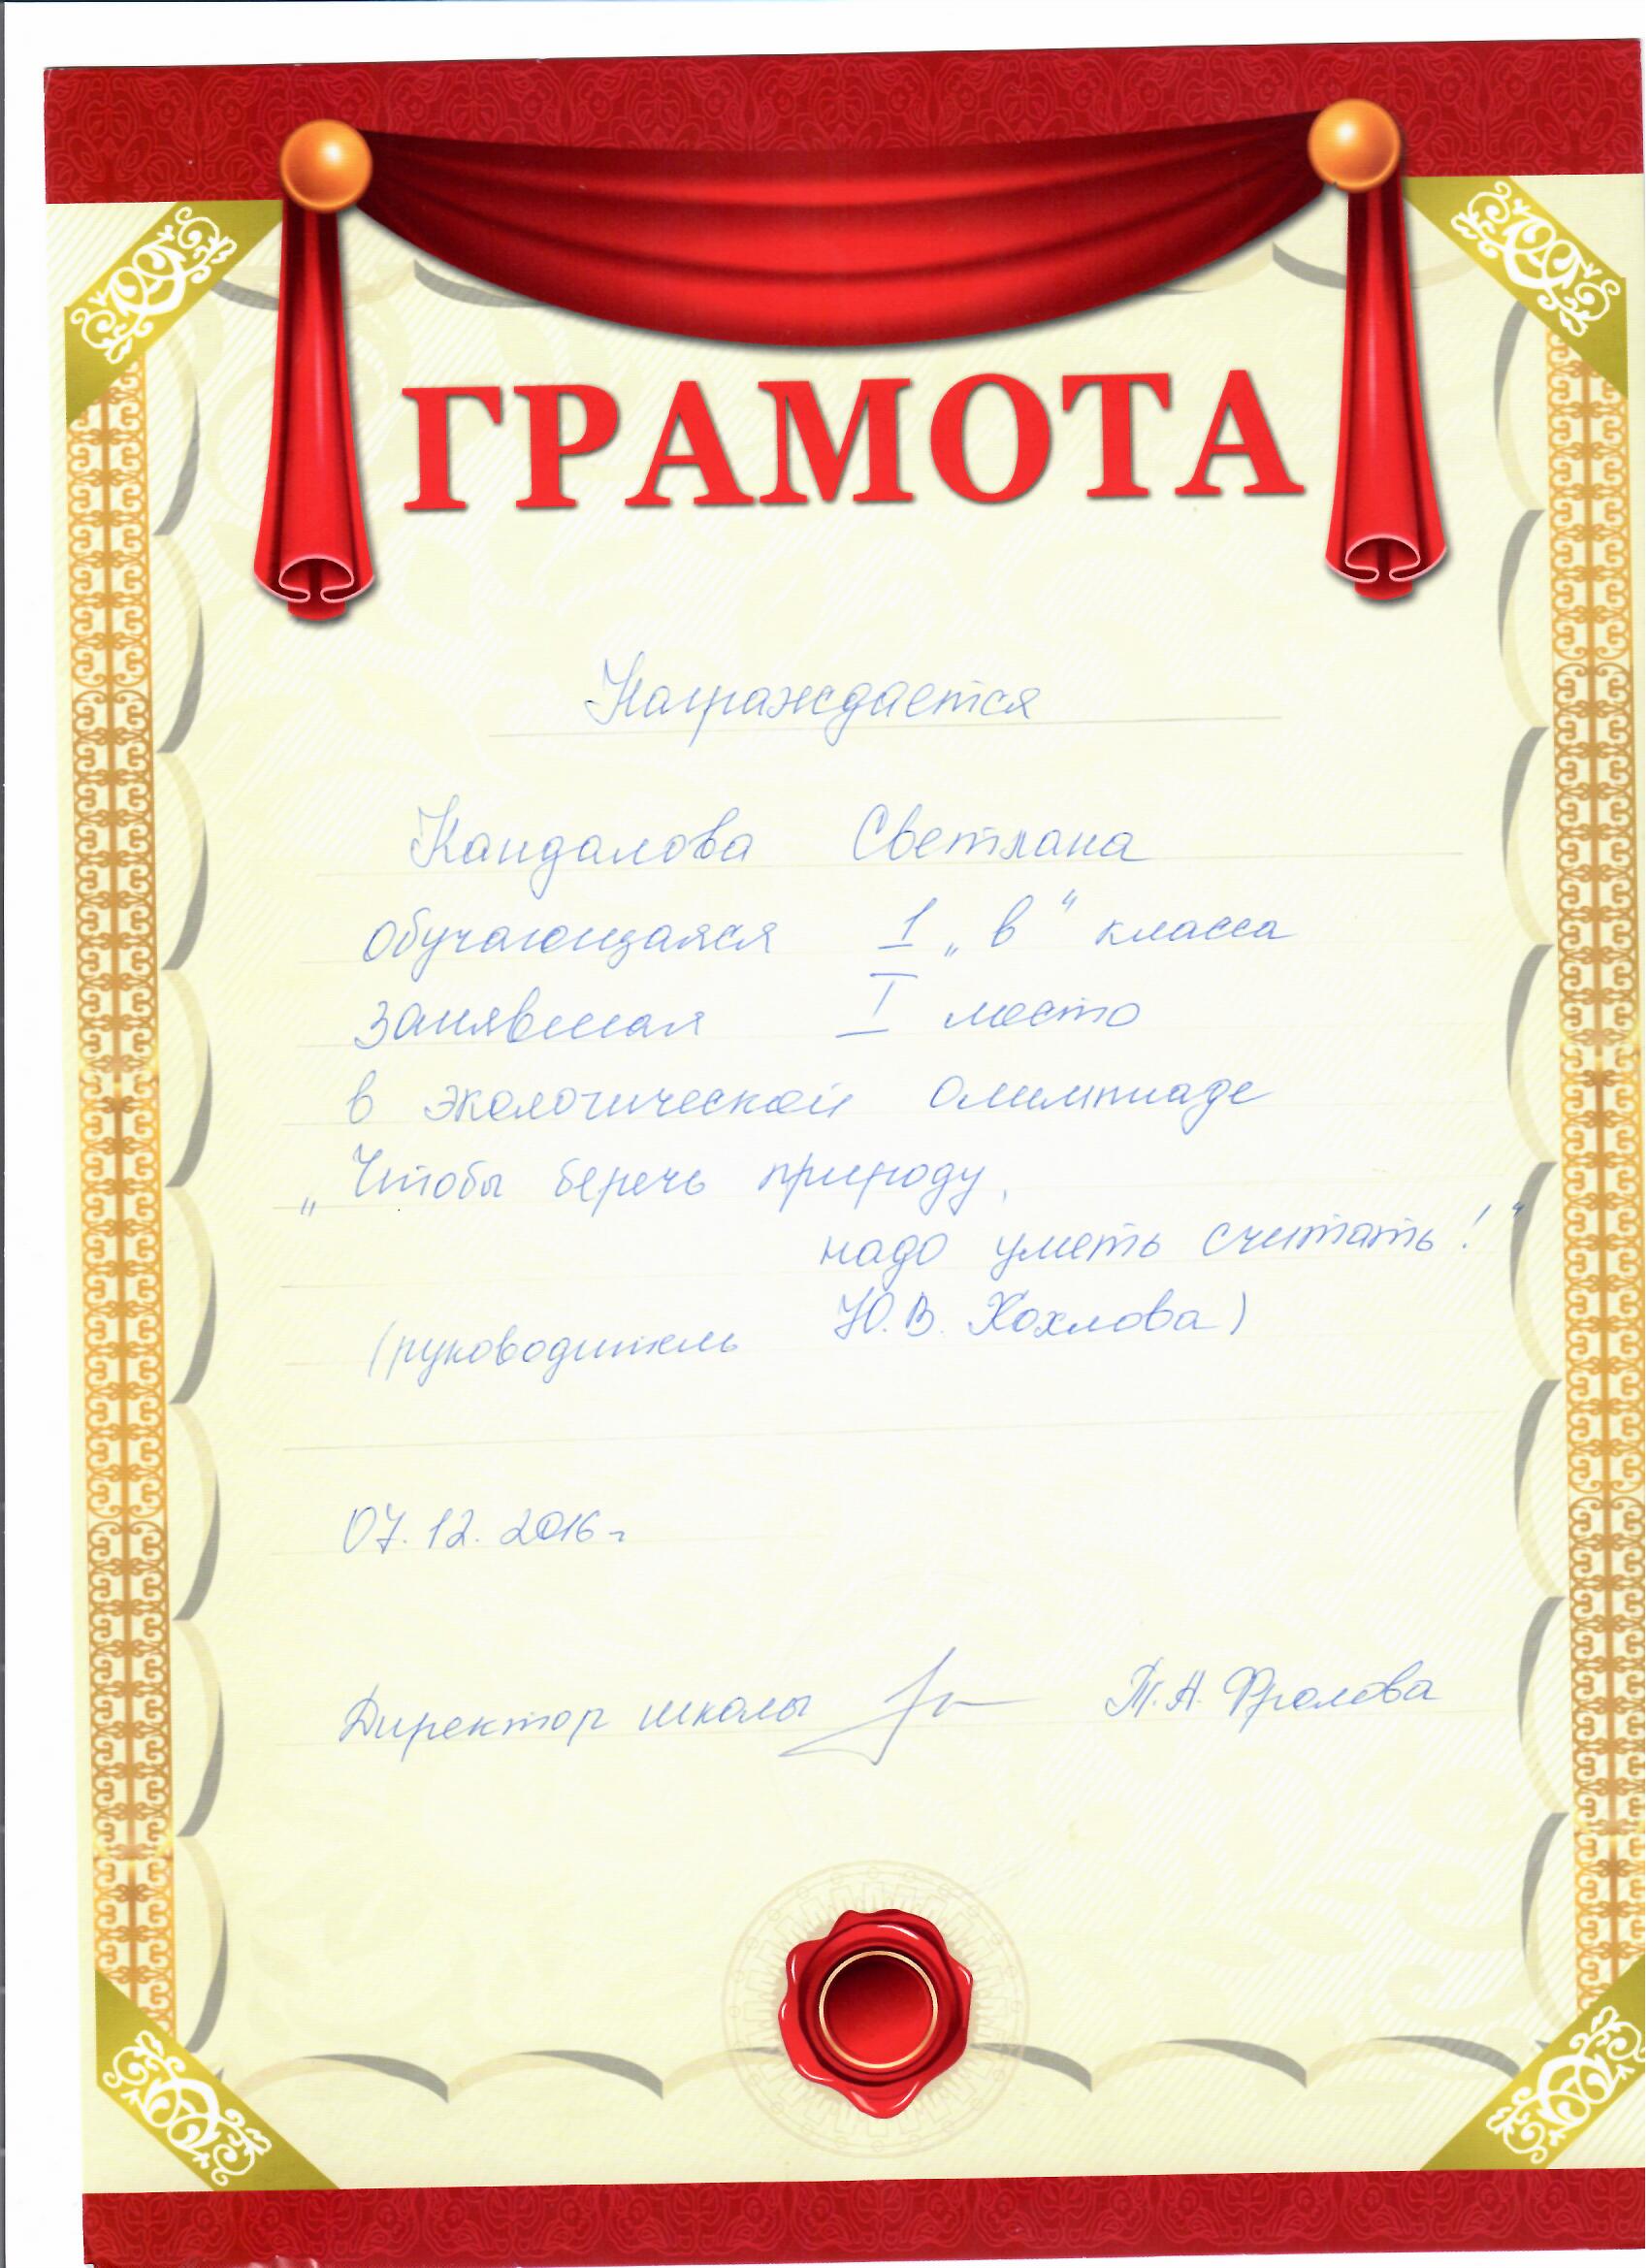 ГРАМОТА
Награждается
Кандалова Светлана
обучающаяся 1 „в“ класса
занявшая I место
в экологической олимпиаде
„Чтобы беречь природу,
надо уметь считать!“
(руководитель Ю.В. Хохлова)
07.12.2016г
Директор школы Т.А. Фролова